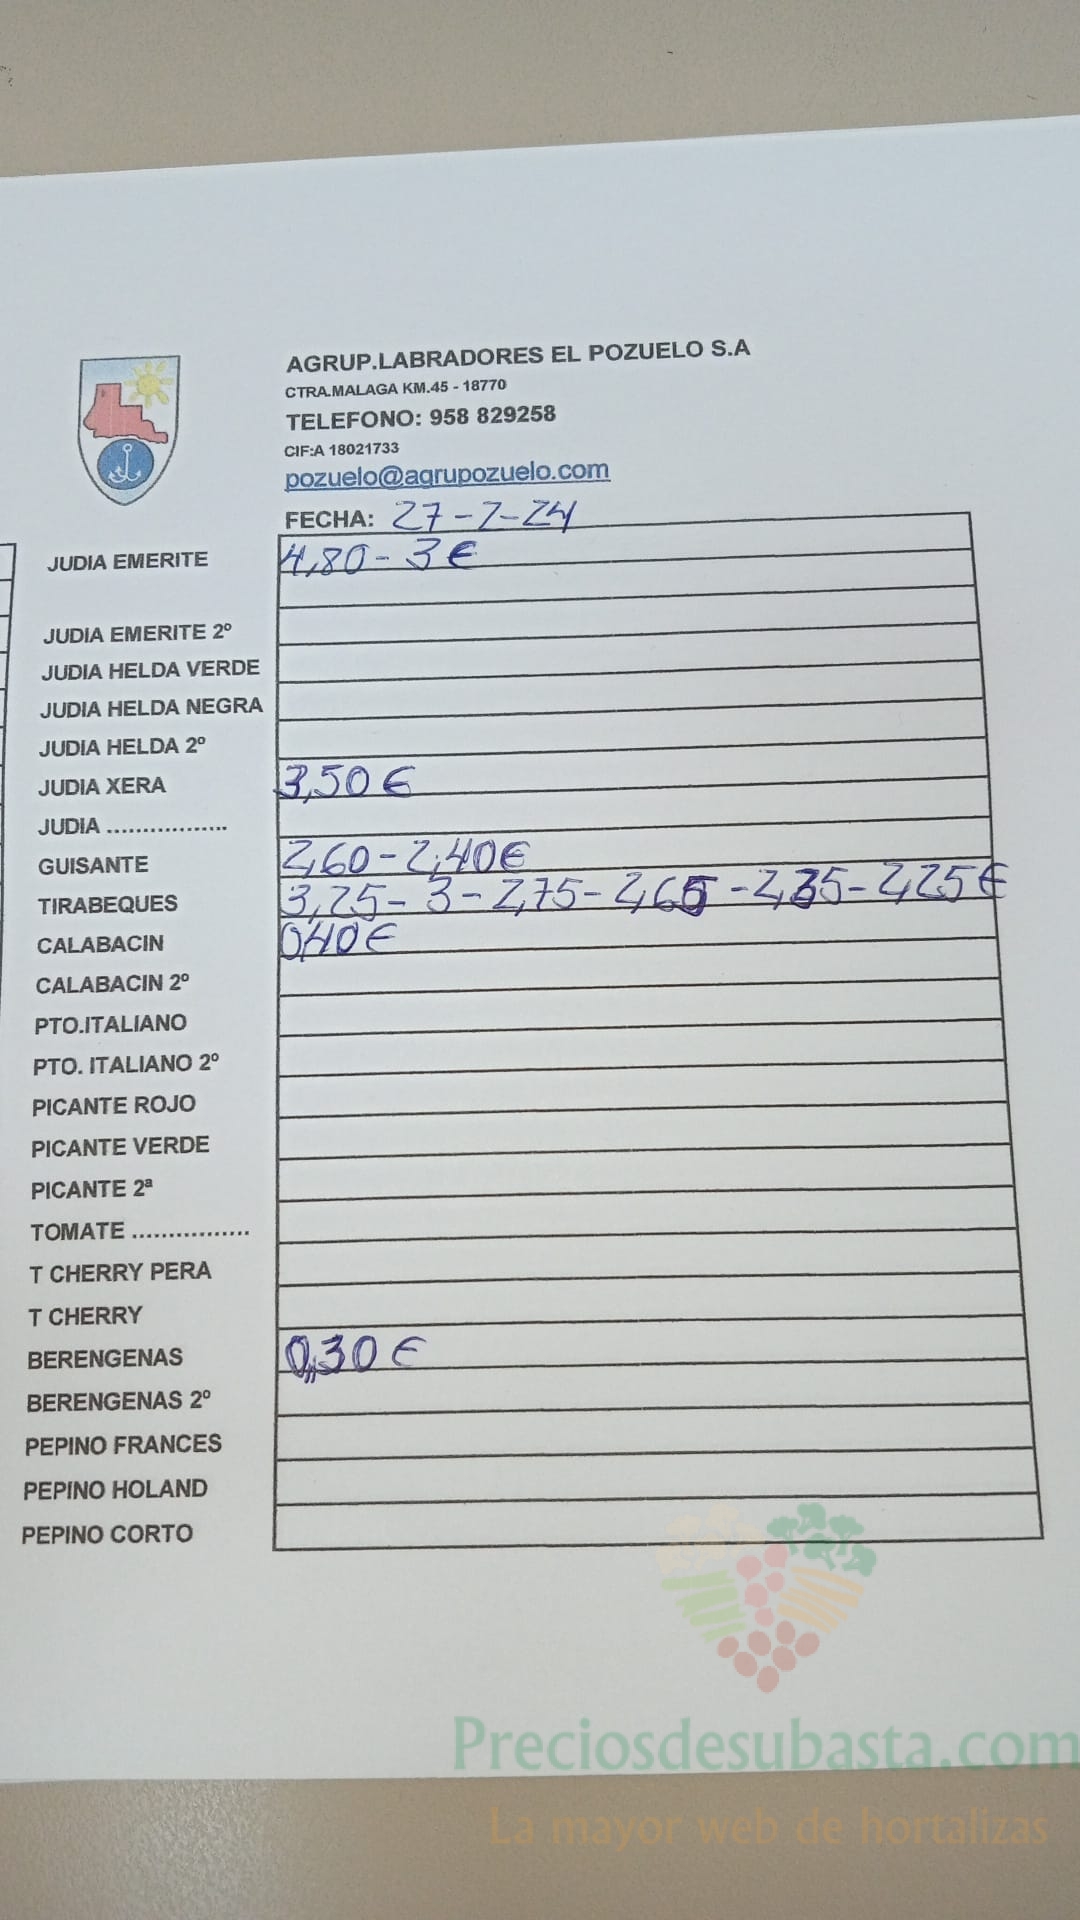 AGRUP.LABRADORES EL POZUELO S.A
CTRA.MALAGA KM.45 - 18770
TELEFONO: 958 829258
CIF:A 18021733
pozuelo@agrupozuelo.com
FECHA: 27-2-24
JUDIA EMERITE 4,80 - 3 €
JUDIA EMERITE 2º
JUDIA HELDA VERDE
JUDIA HELDA NEGRA
JUDIA HELDA 2º
JUDIA XERA 3,50 €
JUDIA .................
GUISANTE 2,60 - 2,40 €
TIRABEQUES 3,25 - 3 - 2,75 - 2,65 - 2,35 - 2,25 €
CALABACIN 0,40 €
CALABACIN 2º
PTO.ITALIANO
PTO. ITALIANO 2º
PICANTE ROJO
PICANTE VERDE
PICANTE 2ª
TOMATE ................
T CHERRY PERA
T CHERRY
BERENGENAS 0,30 €
BERENGENAS 2º
PEPINO FRANCES
PEPINO HOLAND
PEPINO CORTO
Preciosdesubasta.com
La mayor web de hortalizas